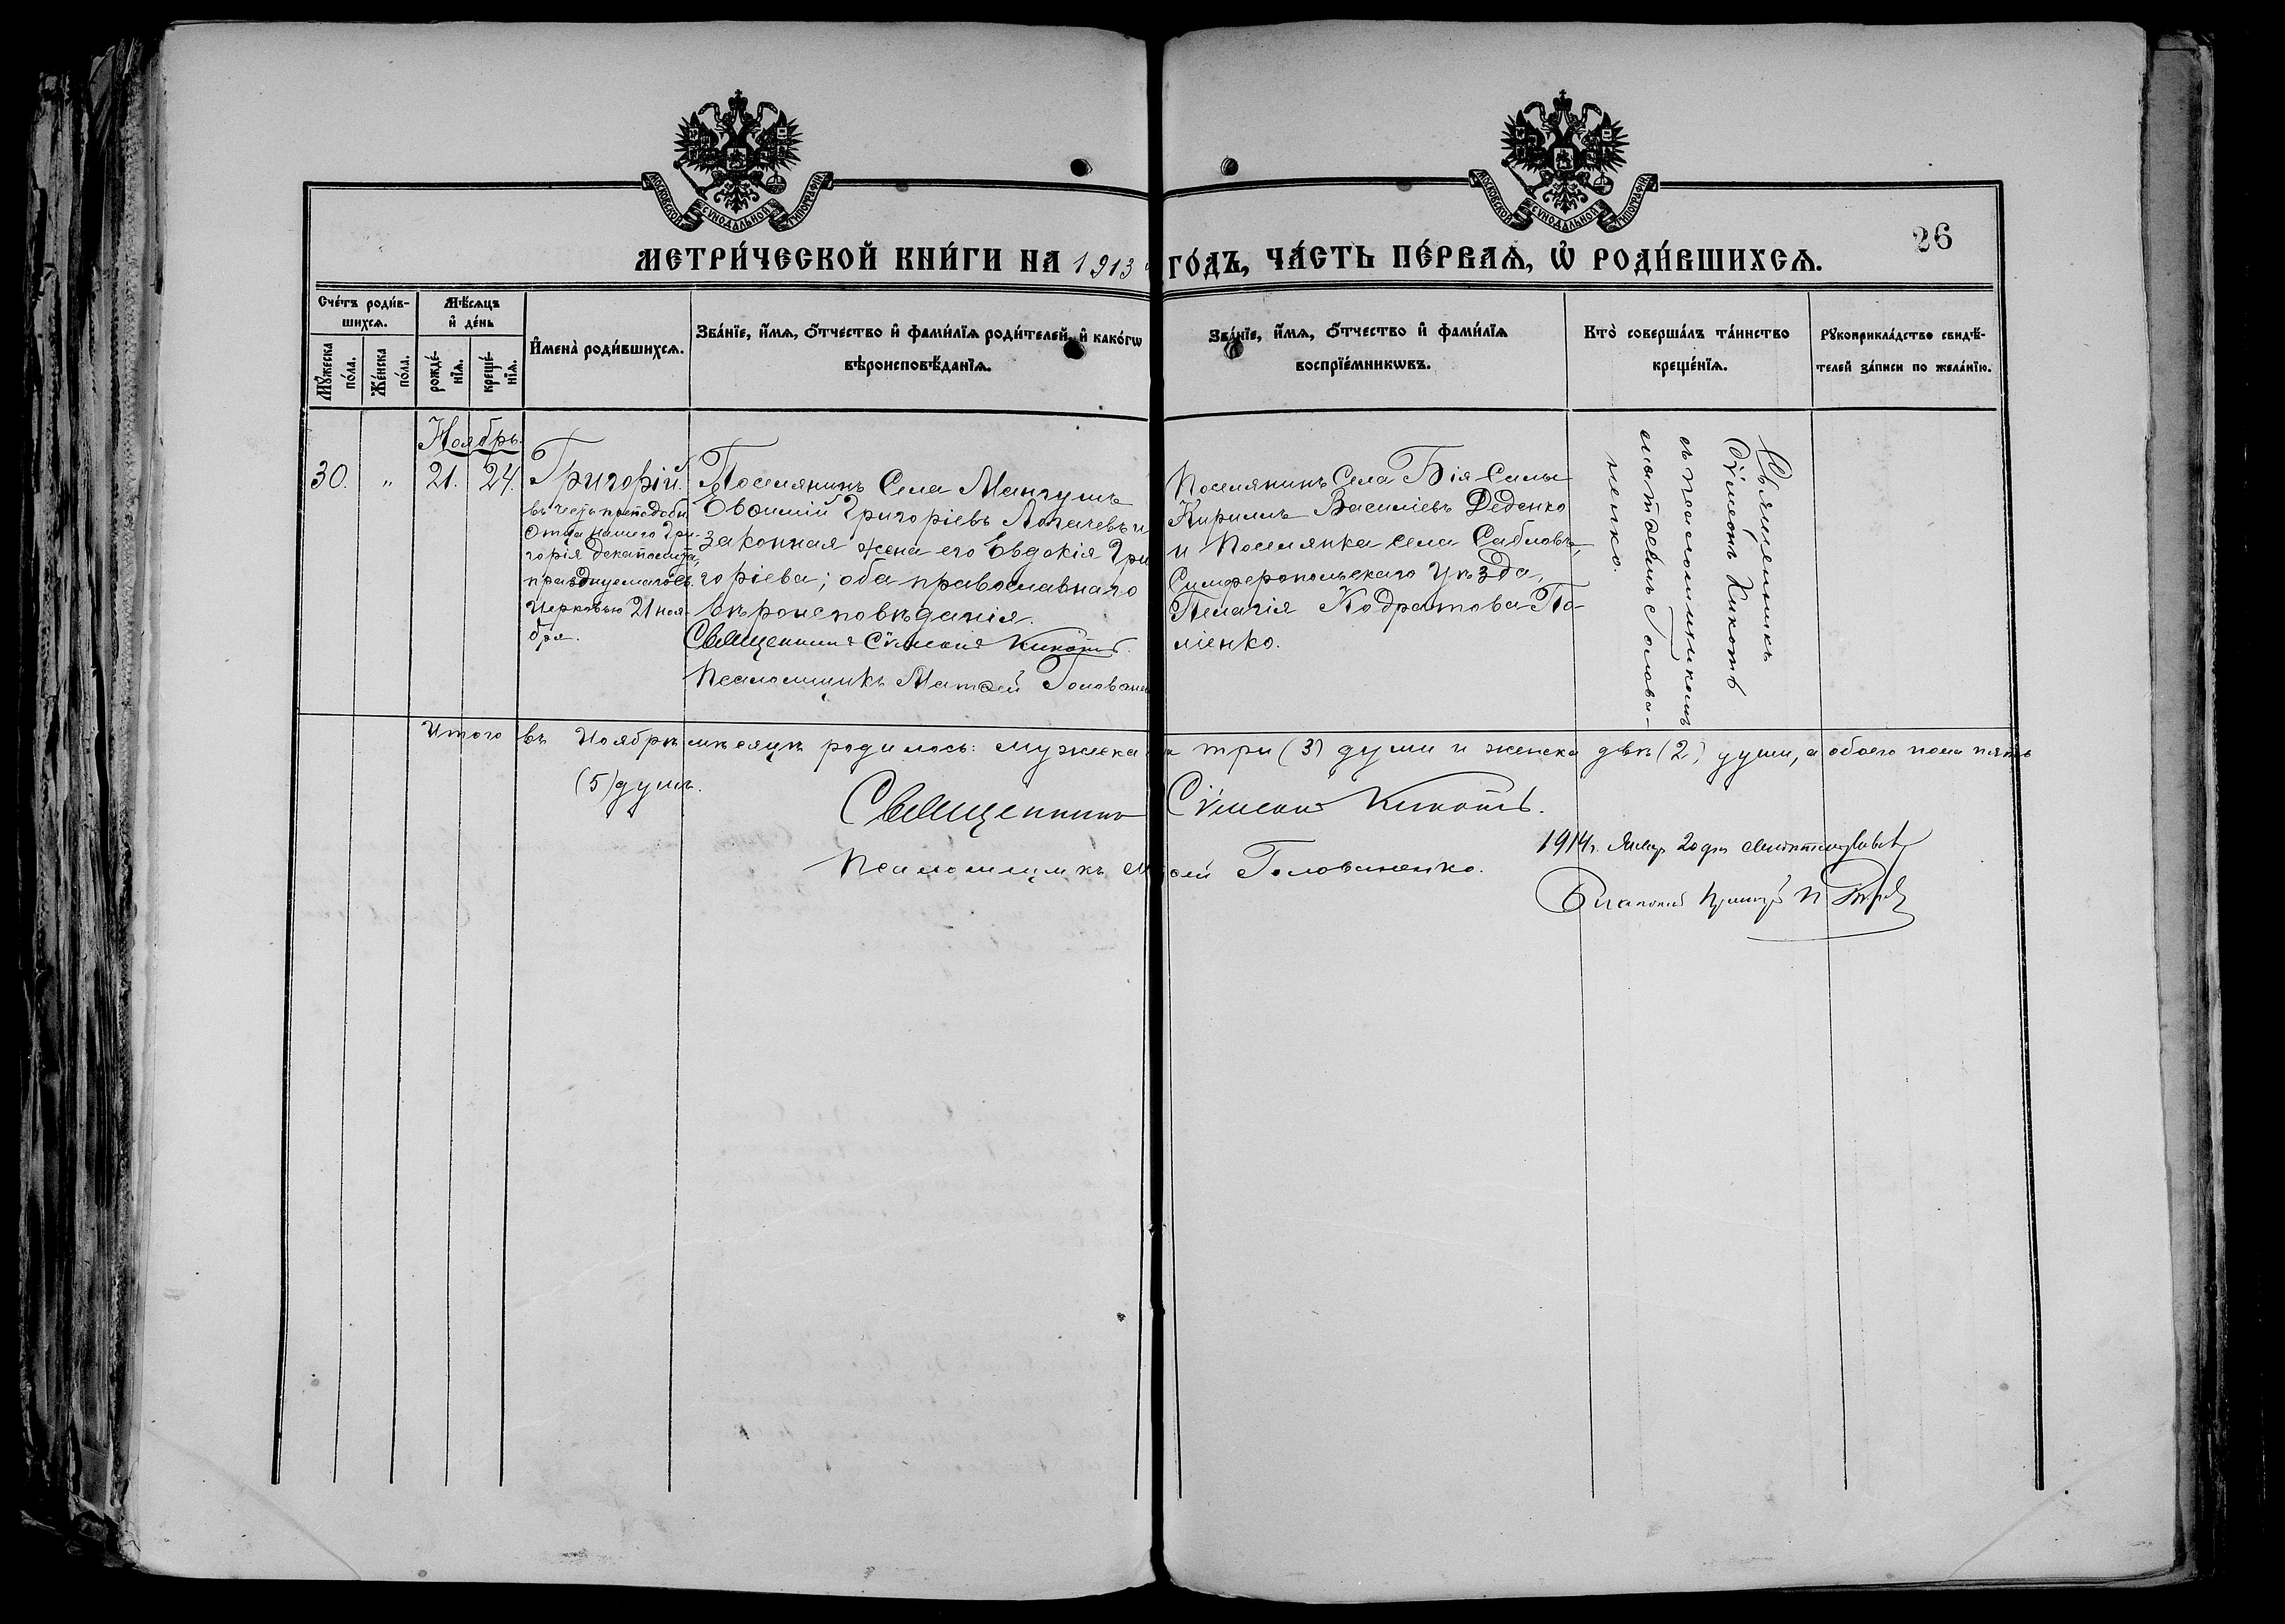 МОСКОВСКОЙ СѴНОДАЛЬНОЙ ТИПОГРАФІИ
МОСКОВСКОЙ СѴНОДАЛЬНОЙ ТИПОГРАФІИ
26
МЕТРИ́ЧЕСКОЙ КНИ́ГИ НА 1913 ГО́ДЪ, ЧА́СТЬ ПЕ́РВАѦ, Ѡ҆ РОДИ́ВШИХСѦ.
Сче́тъ роди́в-
шихсѧ.
Мѣ́сѧцъ
и҆ де́нь
Мꙋ́жеска
по́ла.
Же́нска
по́ла.
рожде́-
нїѧ.
креще́-
нїѧ.
И҆мена̀ роди́вшихсѧ.
Зва́нїе, и҆́мѧ, ѻ҆́тчество и҆ фами́лїѧ роди́телей, и҆ како́гѡ
вѣроисповѣ́данїѧ.
Зва́нїе, и҆́мѧ, ѻ҆́тчество и҆ фами́лїѧ
воспрїе́мникѡвъ.
Кто̀ соверша́лъ та́инство
креще́нїѧ.
Рꙋкоприкла́дство свидѣ́-
телей за́писи по жела́нїю.
Ноябрь.
30.
"
21.
24.
Григорій.
въ честь преподобн.
Отца нашего Гри-
горія Декаполита,
празднуемаго Св.
Церковью 21 ноя-
бря.
Поселянинъ Села Мангушъ
Евѳимій Григоріевъ Логачевъ и
законная жена его Евдокія Гри
горіева; оба православнаго
вѣроисповѣданія.
Священникъ Сѵмеонъ Кикоть.
Псаломщикъ Матѳей Голована
Поселянинъ Села Бія-Салы
Кириллъ Василіевъ Деденко
и Поселянка села Сабловъ,
Симферопольскаго Уѣзда,
Пелагія Кодратова По-
ліенко.
Священникъ
Сѵмеонъ Кикоть
съ псаломщикомъ
Матѳеемъ Голова-
ненко.
Итого въ Ноябрѣ мѣсяцѣ родилось: мужеска три (3) души и женска двѣ (2) души, а обоего пола пять
(5) душъ.
Священникъ Сѵмеонъ Кикоть.
Псаломщикъ Матѳей Голованенко.
1914 г. Январ 20 дня
Благочин